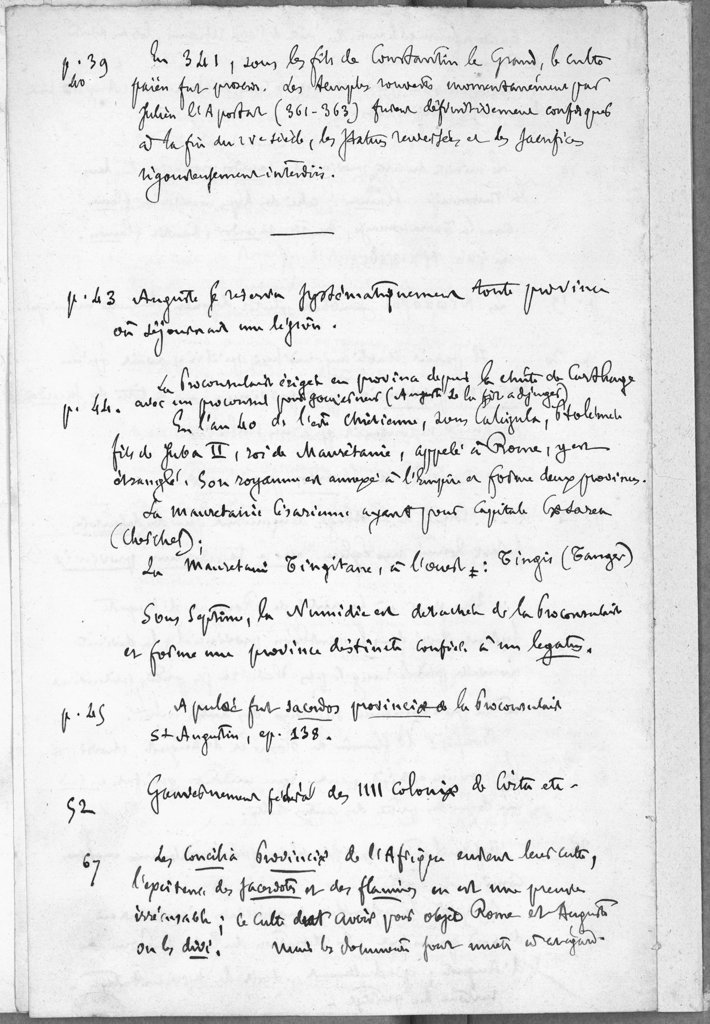 p. 39 En 341, sous les fils de Constantin le Grand, le culte
40 païen fut proscrit. Les temples rouverts momentanément par
Julien l'Apostat (361-363) furent définitivement confisqués
à la fin du IVe siècle, les statues renversées et les sacrifices
rigoureusement interdits.
p. 43 Auguste se réserva systématiquement toute province
où séjournait une légion.
La Proconsulaire érigée en province depuis la chute de Carthage
p. 44. avec un proconsul pour gouverneur (Auguste la lui fit adjuger)
En l'an 40 de l'ère chrétienne, sous Caligula, Ptolémée
fils de Juba II, roi de Maurétanie, appelé à Rome, y est
étranglé. Son royaume est annexé à l'Empire et forme deux provinces.
La Maurétanie Césarienne ayant pour capitale Cæsarea
(Cherchel);
La Maurétanie Tingitane, à l'ouest : Tingis (Tanger)
Sous Septime, la Numidie est détachée de la Proconsulaire
et forme une province distincte confiée à un legatus.
p. 45 Apulée fut sacerdos provinciæ de la Proconsulaire
St Augustin, ep. 138.
52 Gouvernement fédéral des IIII coloniæ de Cirta etc.
67 Les Concilia Provinciæ de l'Afrique eurent leur culte,
l'existence des sacerdotes et des flamines en est une preuve
irrécusable ; ce culte doit avoir pour objet Rome et Auguste
ou les divi. Mais les documents sont muets à cet égard.